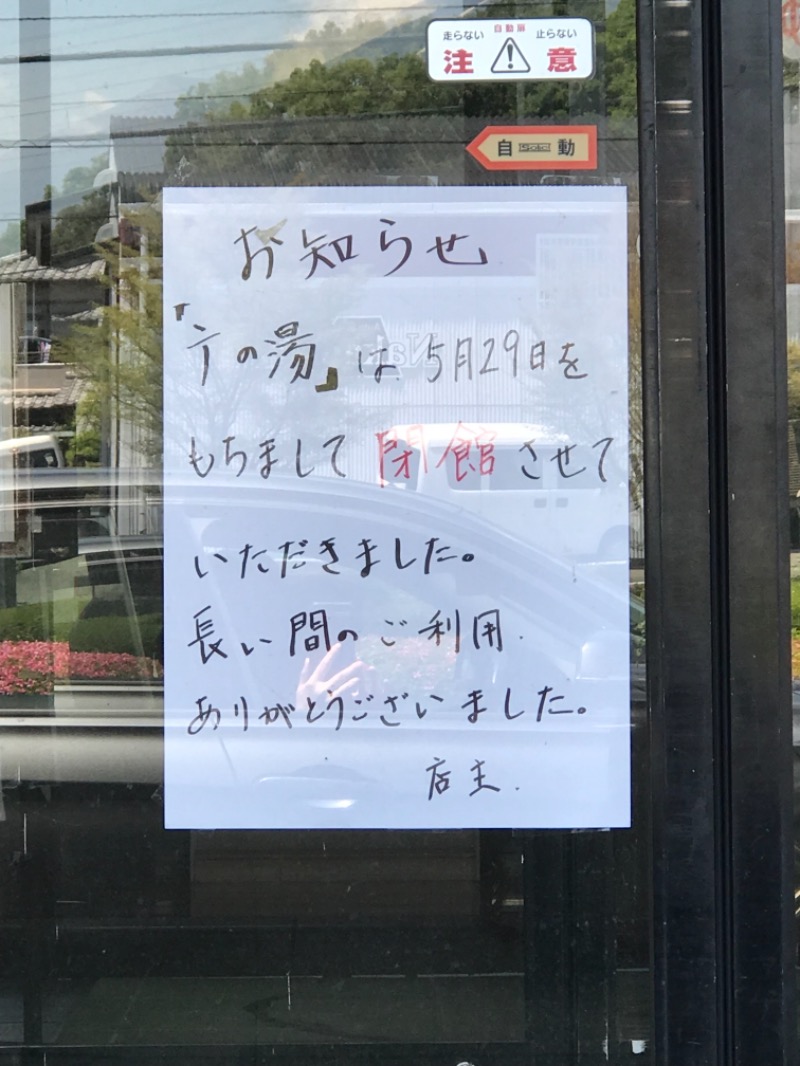 自動扉
走らない 止らない
注 意
自 動
お知らせ
「亍の湯」は 5月29日を
もちまして 閉館させて
いただきました。
長い間のご利用.
ありがとうございました。
店主.